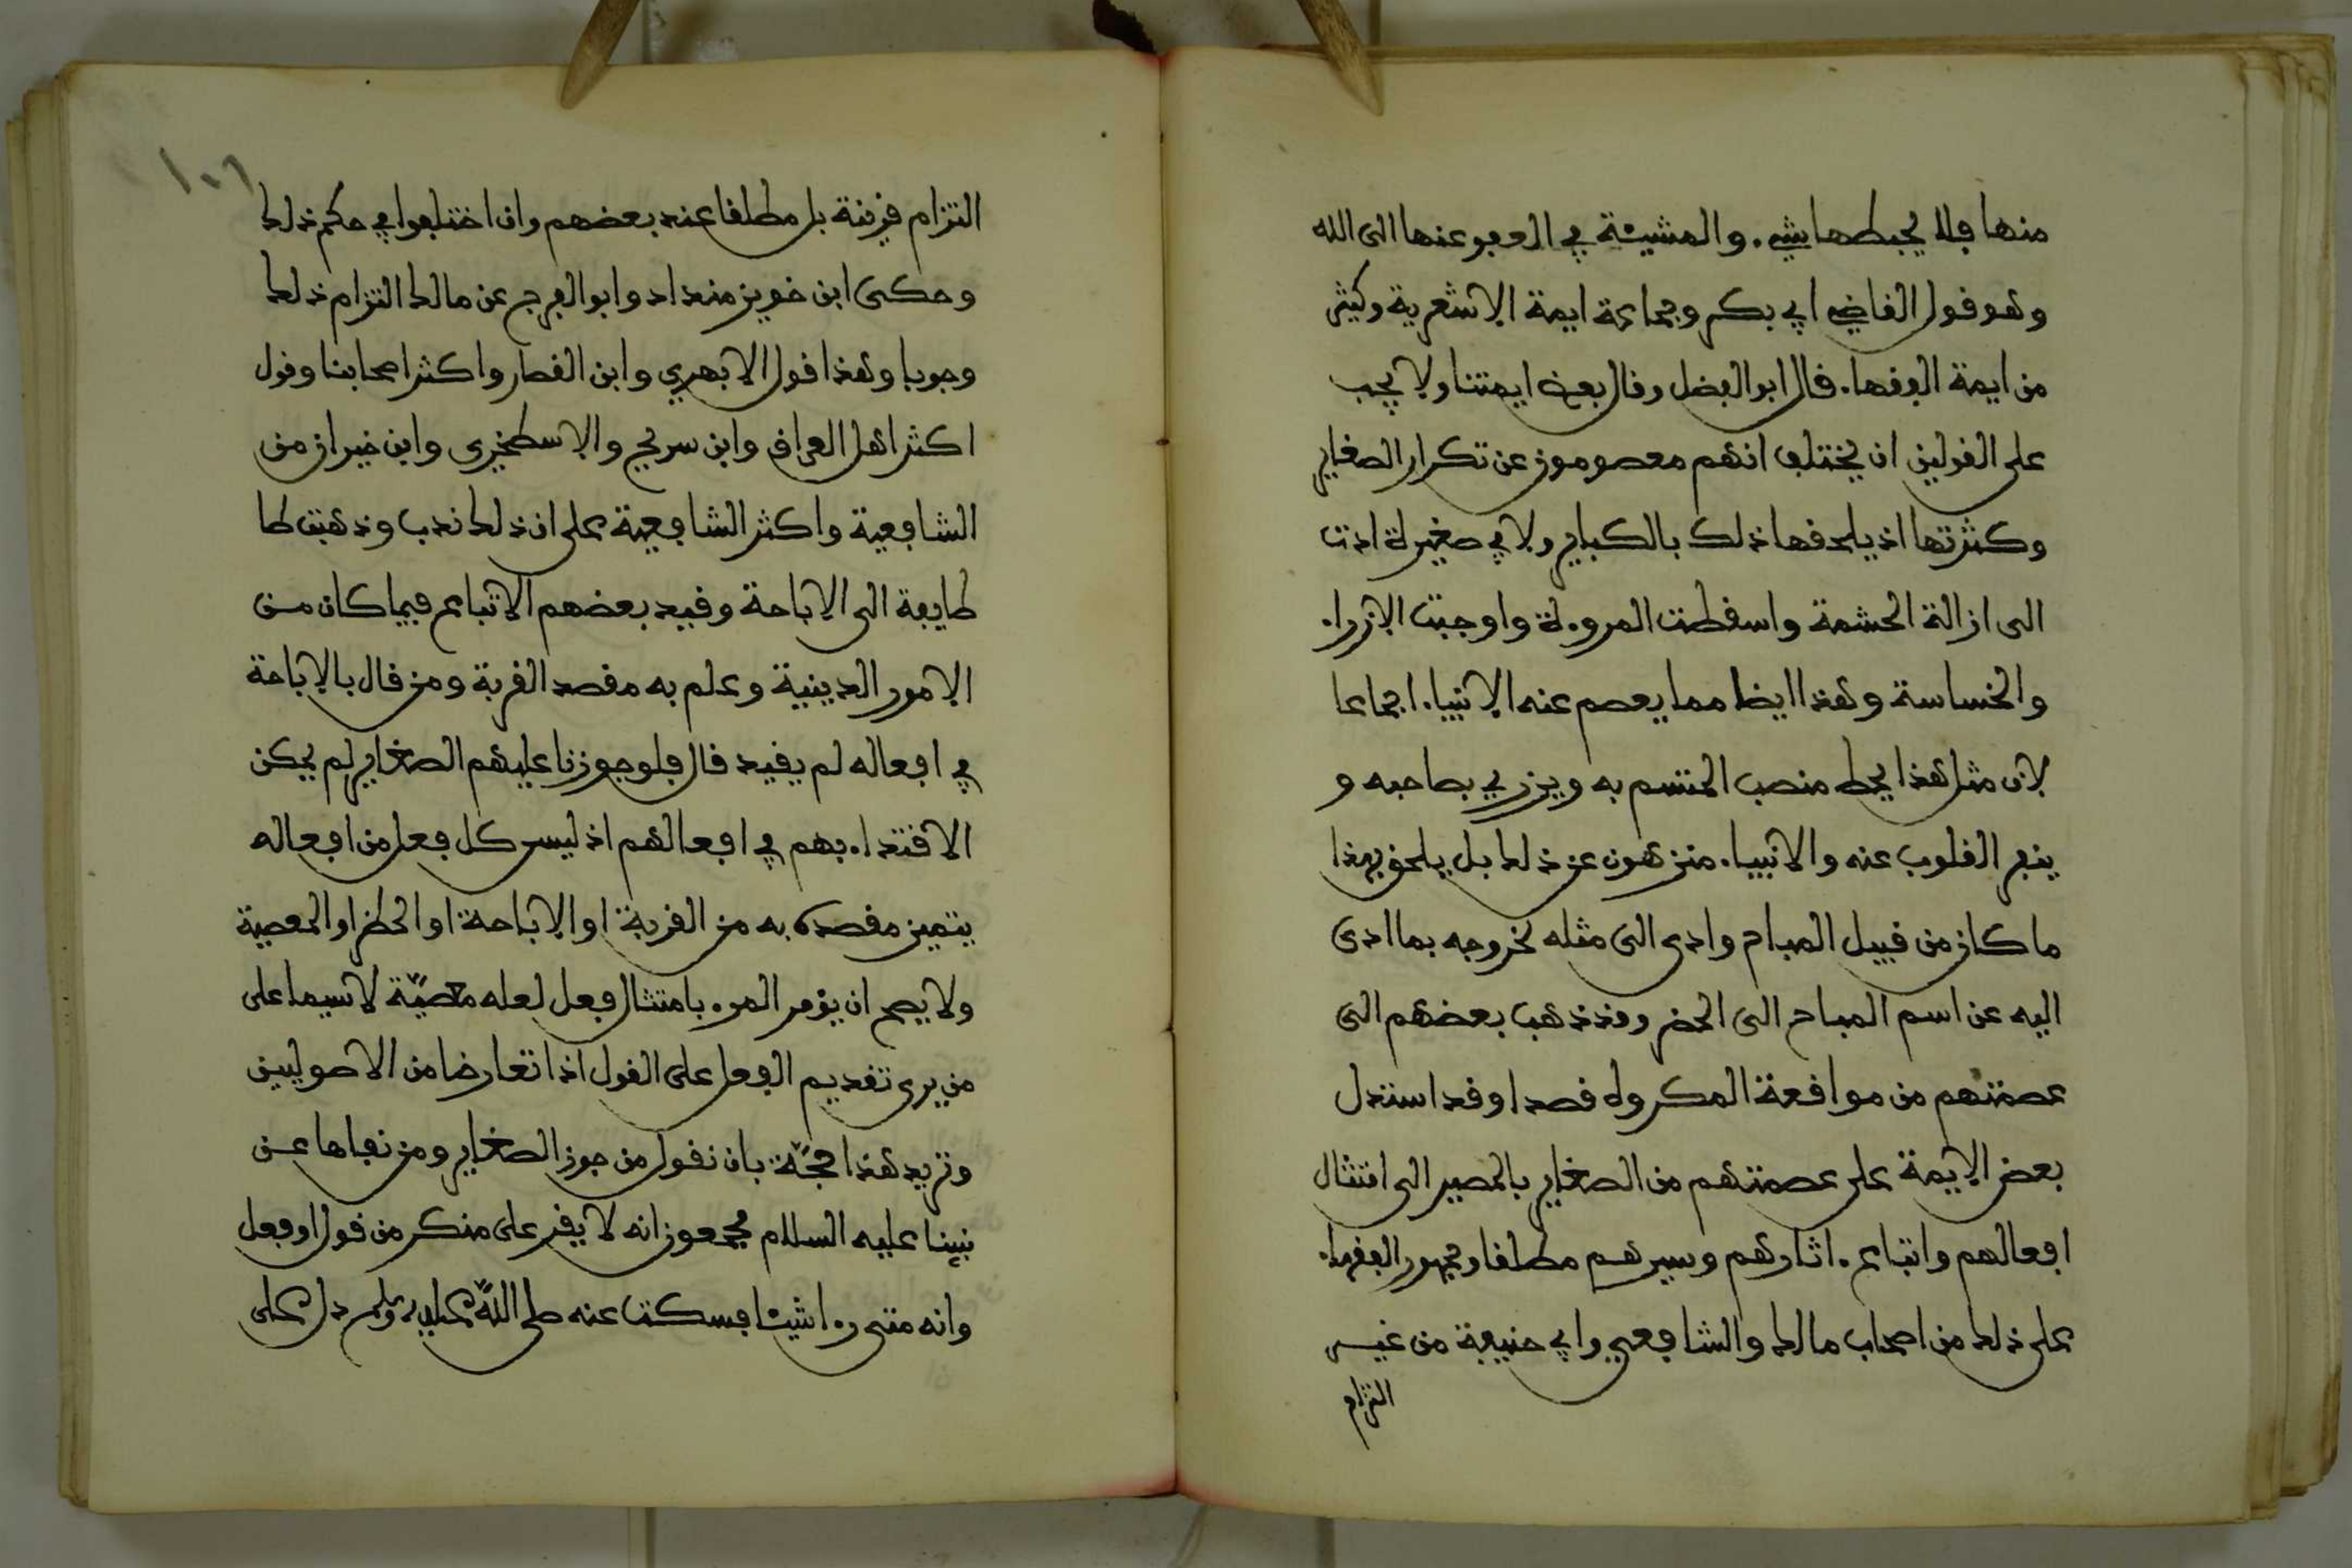 منها فلا يحبطها شيء. والمشيئة في العفو عنها الى الله
وهو قول القاضي ابي بكر وجماعة ايمة الاشعرية وكثير
من ايمة الفقها. قال ابو الفضل وقال بعض ايمتنا ولا يجب
على القولين ان يختلف انهم معصومون عن تكرار الصغاير
وكثرتها اذ يلحقها ذلك بالكباير ولا في صغيرة ادت
الى ازالة الحشمة واسقطت المروءة واوجبت الازراء
والخساسة وهذا ايضا مما يعصم عنه الانبياء اجماعا
لان مثل هذا يحط منصب المتسم به ويزري بصاحبه و
ينفر القلوب عنه والانبياء منزهون عن ذلك بل يلحق بهذا
ما كان من قبيل المباح وادى الى مثله لخروجه بما ادى
اليه عن اسم المباح الى الحضر وقد ذهب بعضهم الى
عصمتهم من موافعة المكروه قصدا وقد استدل
بعض الايمة على عصمتهم من الصغاير بالمصير الى امتثال
افعالهم واتباع ءاثارهم وسيرهم مطلقا وجمهور الفقهاء
على ذلك من اصحاب مالك والشافعي وابي حنيفة من غير
التزام
١٠٦
التزام قرينة بل مطلقا عند بعضهم وان اختلفوا في حكم ذلك
وحكى ابن خويز منداد وابو الفرج عن مالك التزام ذلك
وجوبا وهذا قول الابهري وابن القصار واكثر اصحابنا وقول
اكثر اهل العراق وابن سريج والاسطخري وابن خيران من
الشافعية واكثر الشافعية على ان ذلك ندب وذهبت طا
طايفة الى الاباحة وقيد بعضهم الاتباع فيما كان من
الامور الدينية وعلم به مقصد القربة ومن قال بالاباحة
في افعاله لم يقيد قال فلو جوزنا عليهم الصغاير لم يمكن
الاقتداء بهم في افعالهم اذ ليس كل فعل من افعاله
يتميز مقصده به من القربة او الاباحة او الحظر او المعصية
ولا يصح ان يؤمر المرء بامتثال فعل لعله معصية لا سيما على
من يرى تقديم الفعل على القول اذا تعارضا من الاصوليين
ونزيد هذا حجة بان نقول من جوز الصغاير ومن نفاها عن
نبينا عليه السلام مجمعون انه لا يقر على منكر من قول او فعل
وانه متى رءا شيئا فسكت عنه صلى الله عليه وسلم دل على